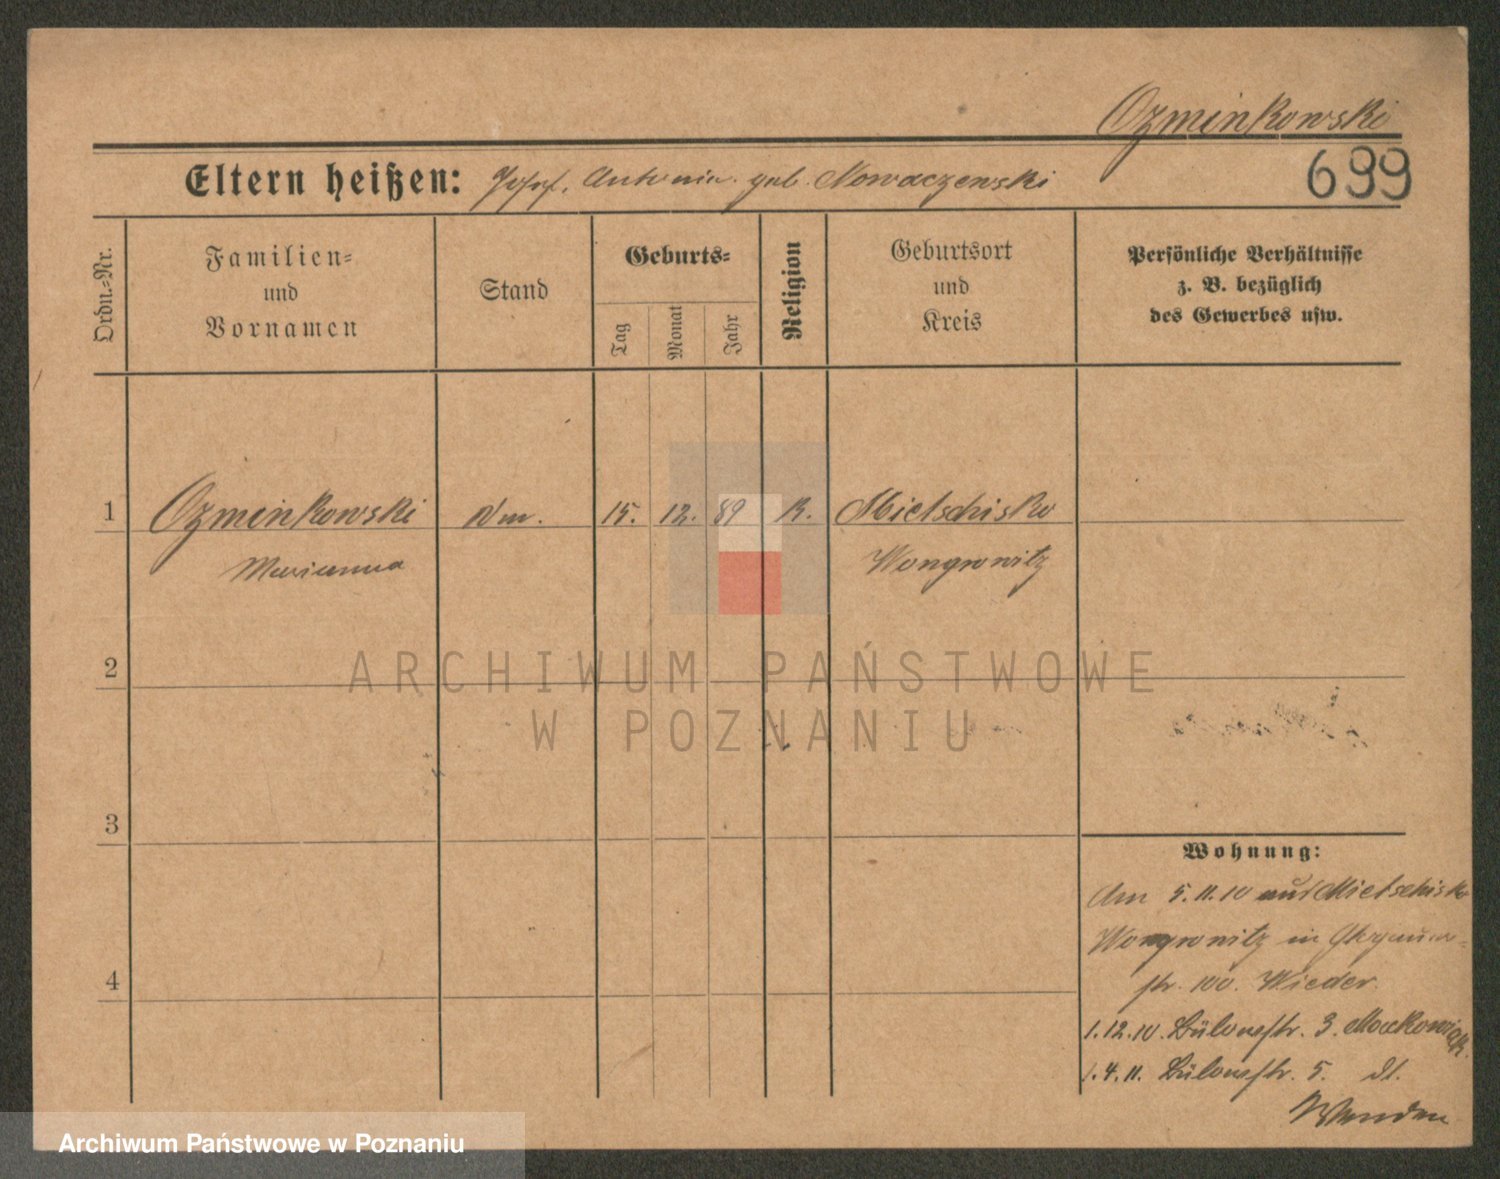 Ozminkowski
Eltern heißen: Josef, Antonia geb. Nowaczewski
699
Ordn.-Nr.
Familien-
und
Vornamen
Stand
Geburts-
Tag
Monat
Jahr
Religion
Geburtsort
und
Kreis
Persönliche Verhältnisse
z. B. bezüglich
des Gewerbes usw.
1 Ozminkowski 15. 12. 89 K. Mietschisko
Marianna Wongrowitz
2
ARCHIWUM PAŃSTWOWE
W POZNANIU
3
Wohnung:
Am 5.11.10 aus Mietschisko
Wongrowitz in
4
str. 100. Wieder.
1.12.10. Bülowstr. 3. Maćkowiak.
1.4.11. Bülowstr. 5. dt.
Wenden
Archiwum Państwowe w Poznaniu